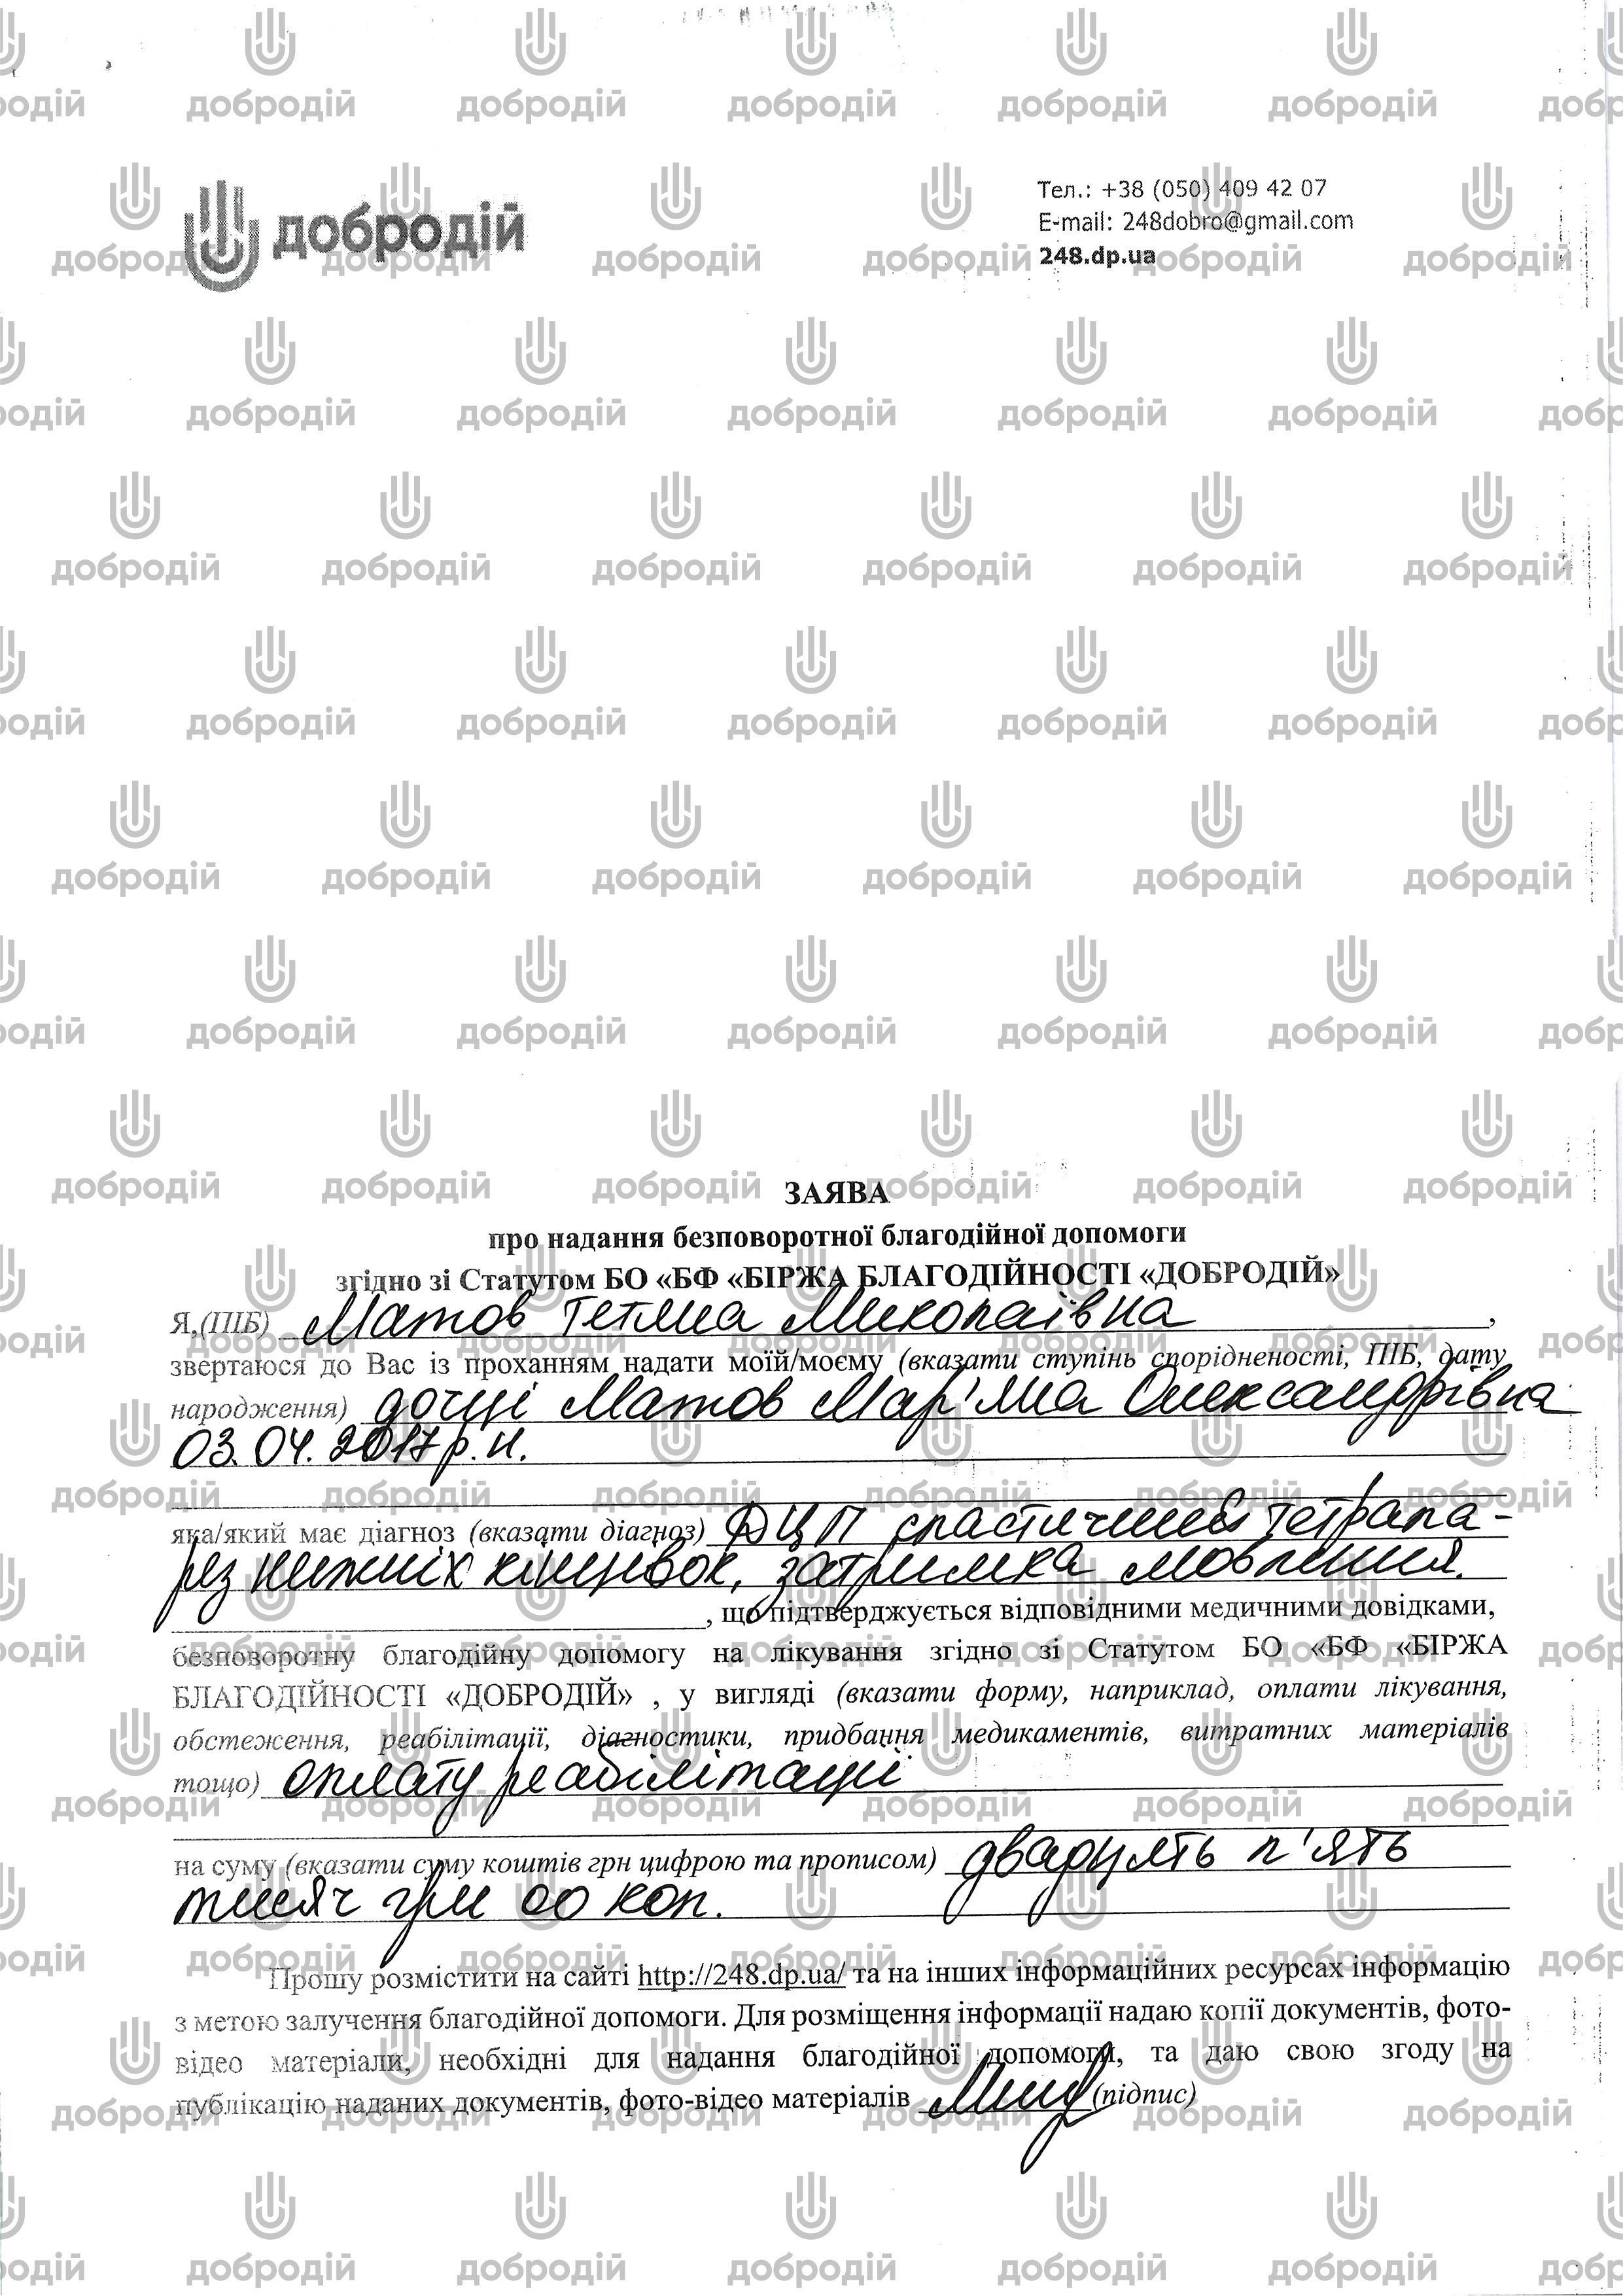 добродій
Тел.: +38 (050) 409 42 07
E-mail: 248dobro@gmail.com
248.dp.ua
ЗАЯВА
про надання безповоротної благодійної допомоги
згідно зі Статутом БО «БФ «БІРЖА БЛАГОДІЙНОСТІ «ДОБРОДІЙ»
Я,(ПІБ) Матов Тетяна Миколаївна ,
звертаюся до Вас із проханням надати моїй/моєму (вказати ступінь спорідненості, ПІБ, дату
народження) дочці Матов Мар'яна Олександрівна
03.04.2017 р.н.
яка/який має діагноз (вказати діагноз) ДЦП спастичний тетрапа-
рез нижніх кінцівок, затримка мовлення.
, що підтверджується відповідними медичними довідками,
безповоротну благодійну допомогу на лікування згідно зі Статутом БО «БФ «БІРЖА
БЛАГОДІЙНОСТІ «ДОБРОДІЙ» , у вигляді (вказати форму, наприклад, оплати лікування,
обстеження, реабілітації, діагностики, придбання медикаментів, витратних матеріалів
тощо) оплату реабілітації
на суму (вказати суму коштів грн цифрою та прописом) двадцять п'ять
тисяч грн 00 коп.
Прошу розмістити на сайті http://248.dp.ua/ та на інших інформаційних ресурсах інформацію
з метою залучення благодійної допомоги. Для розміщення інформації надаю копії документів, фото-
відео матеріали, необхідні для надання благодійної допомоги, та даю свою згоду на
публікацію наданих документів, фото-відео матеріалів (підпис)